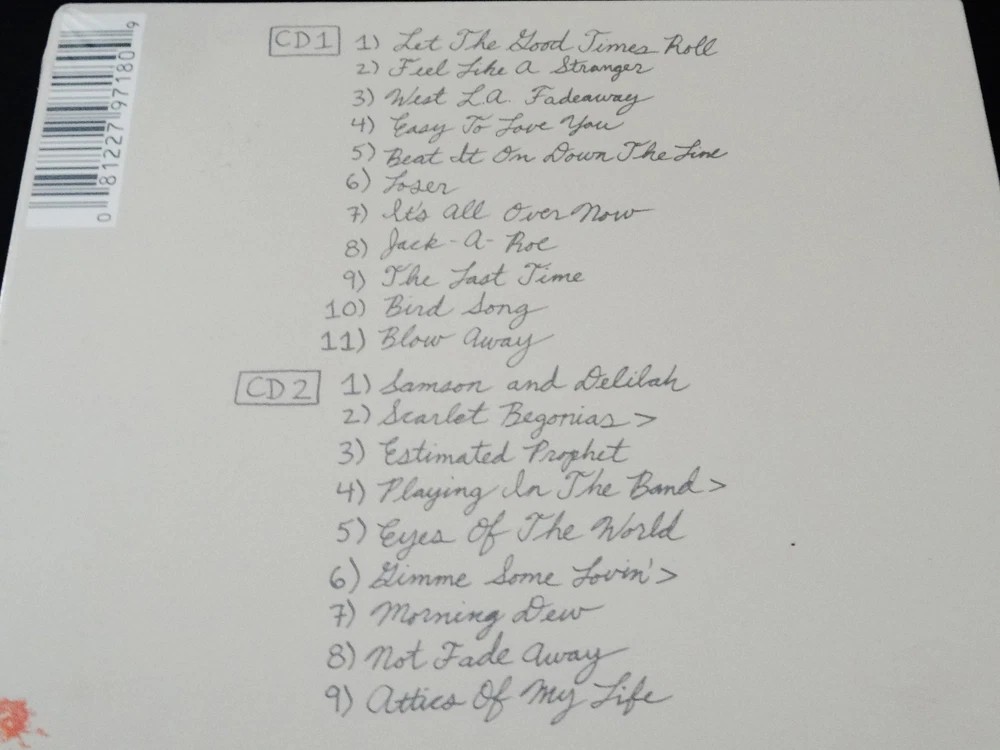 CD1 1) Let The Good Times Roll
2) Feel Like A Stranger
3) West L.A. Fadeaway
4) Easy To Love You
5) Beat It On Down The Line
6) Loser
7) It's All Over Now
8) Jack-A-Roe
9) The Last Time
10) Bird Song
11) Blow Away
CD2 1) Samson and Delilah
2) Scarlet Begonias >
3) Estimated Prophet
4) Playing In The Band >
5) Eyes Of The World
6) Gimme Some Lovin' >
7) Morning Dew
8) Not Fade Away
9) Attics Of My Life
0 81227 97180 9